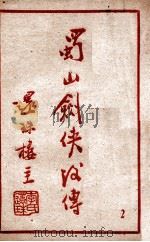 蜀山劍俠後傳
還珠樓主
2